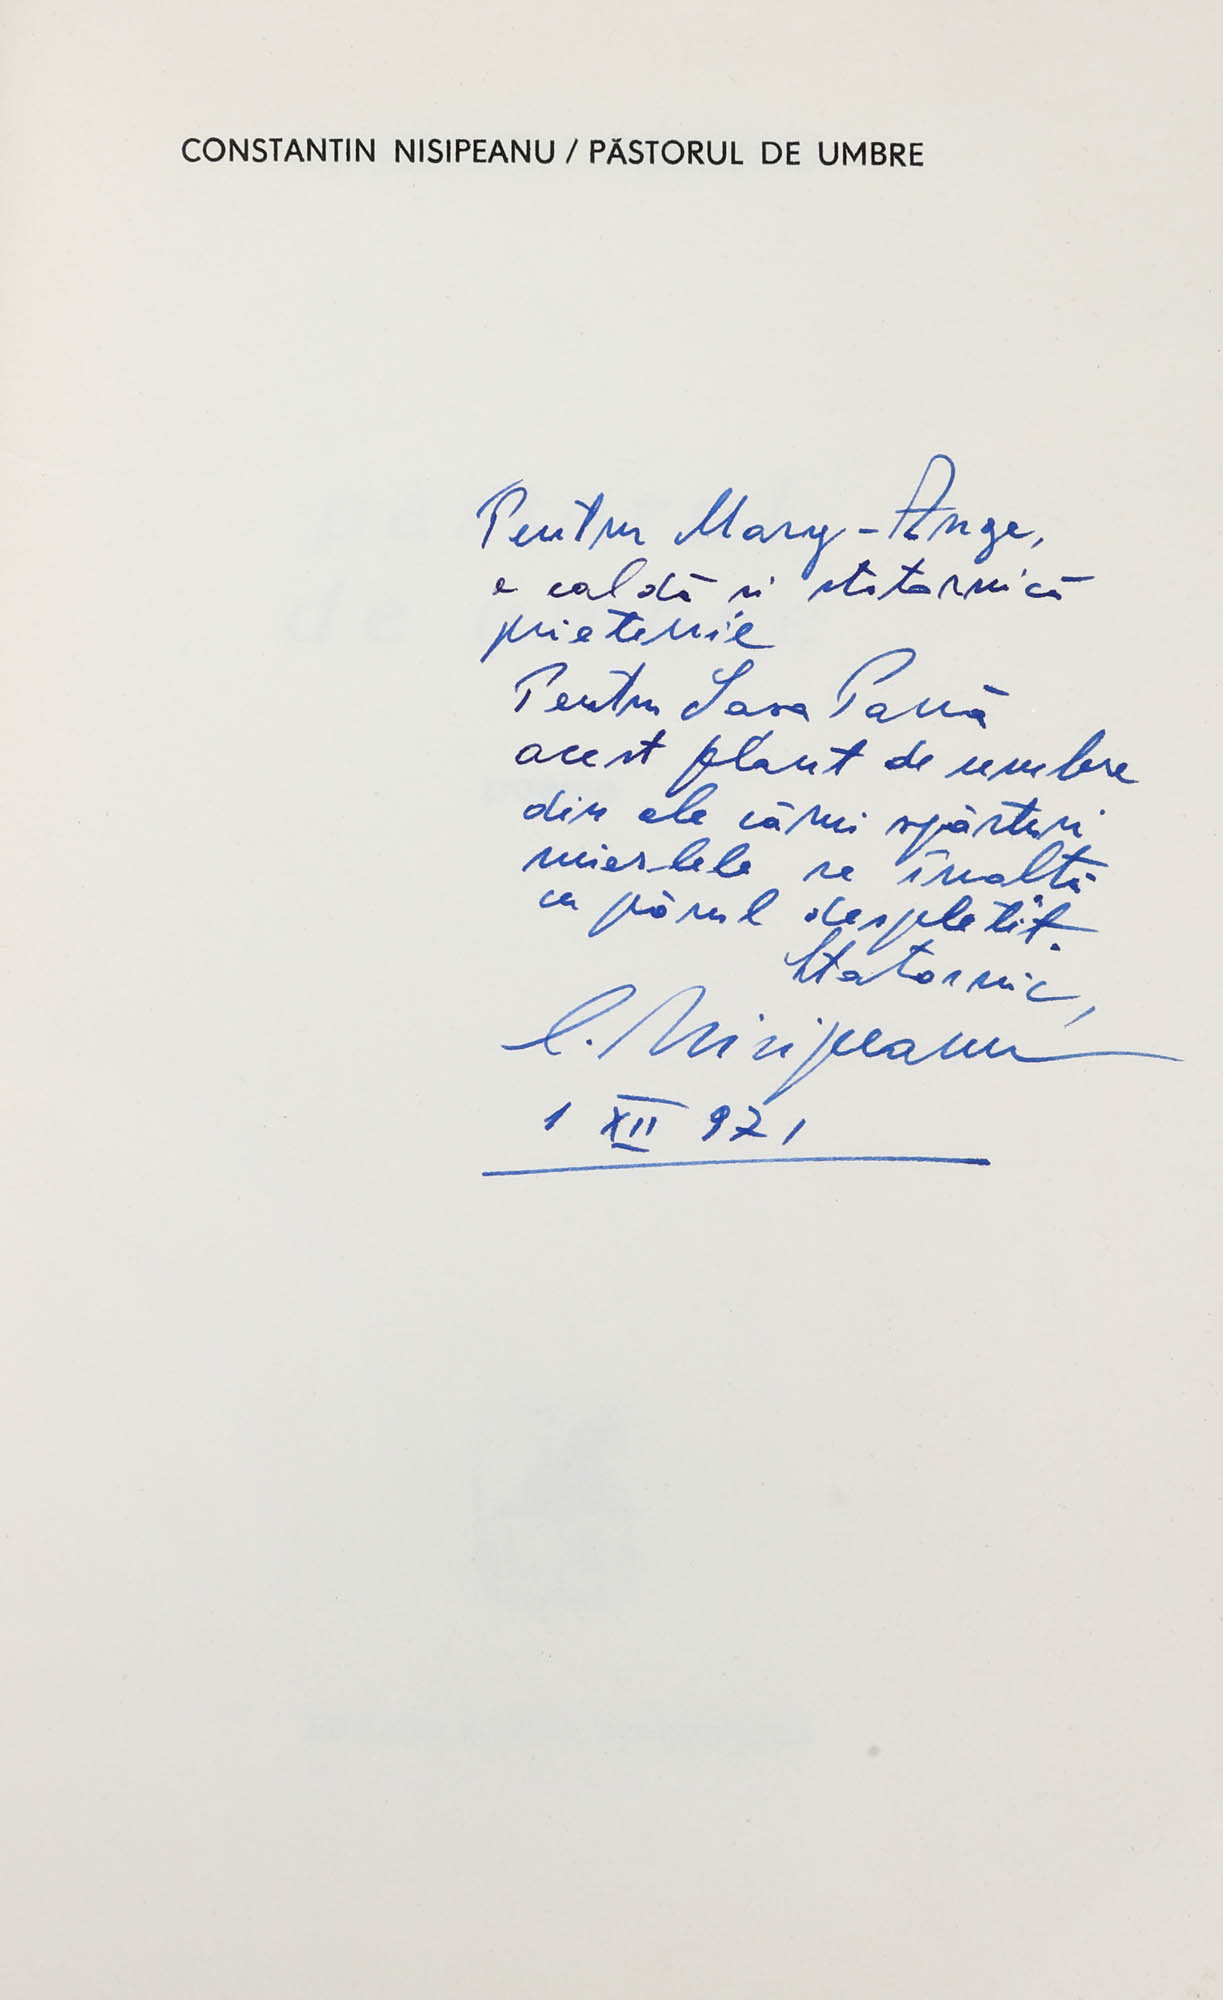 CONSTANTIN NISIPEANU / PĂSTORUL DE UMBRE
Pentru Mary-Ange,
o caldă și statornică
prietenie
Pentru Sașa Pană
acest plaut de umbre
din ale cărui spărturi
mierlele se înalță
ca părul despletit.
Statornic,
C. Nisipeanu
1 XII 971